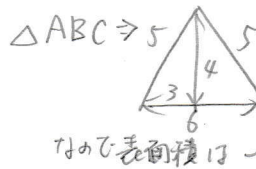 △ABC⇒
5 5
4
3
6
なので表面積は